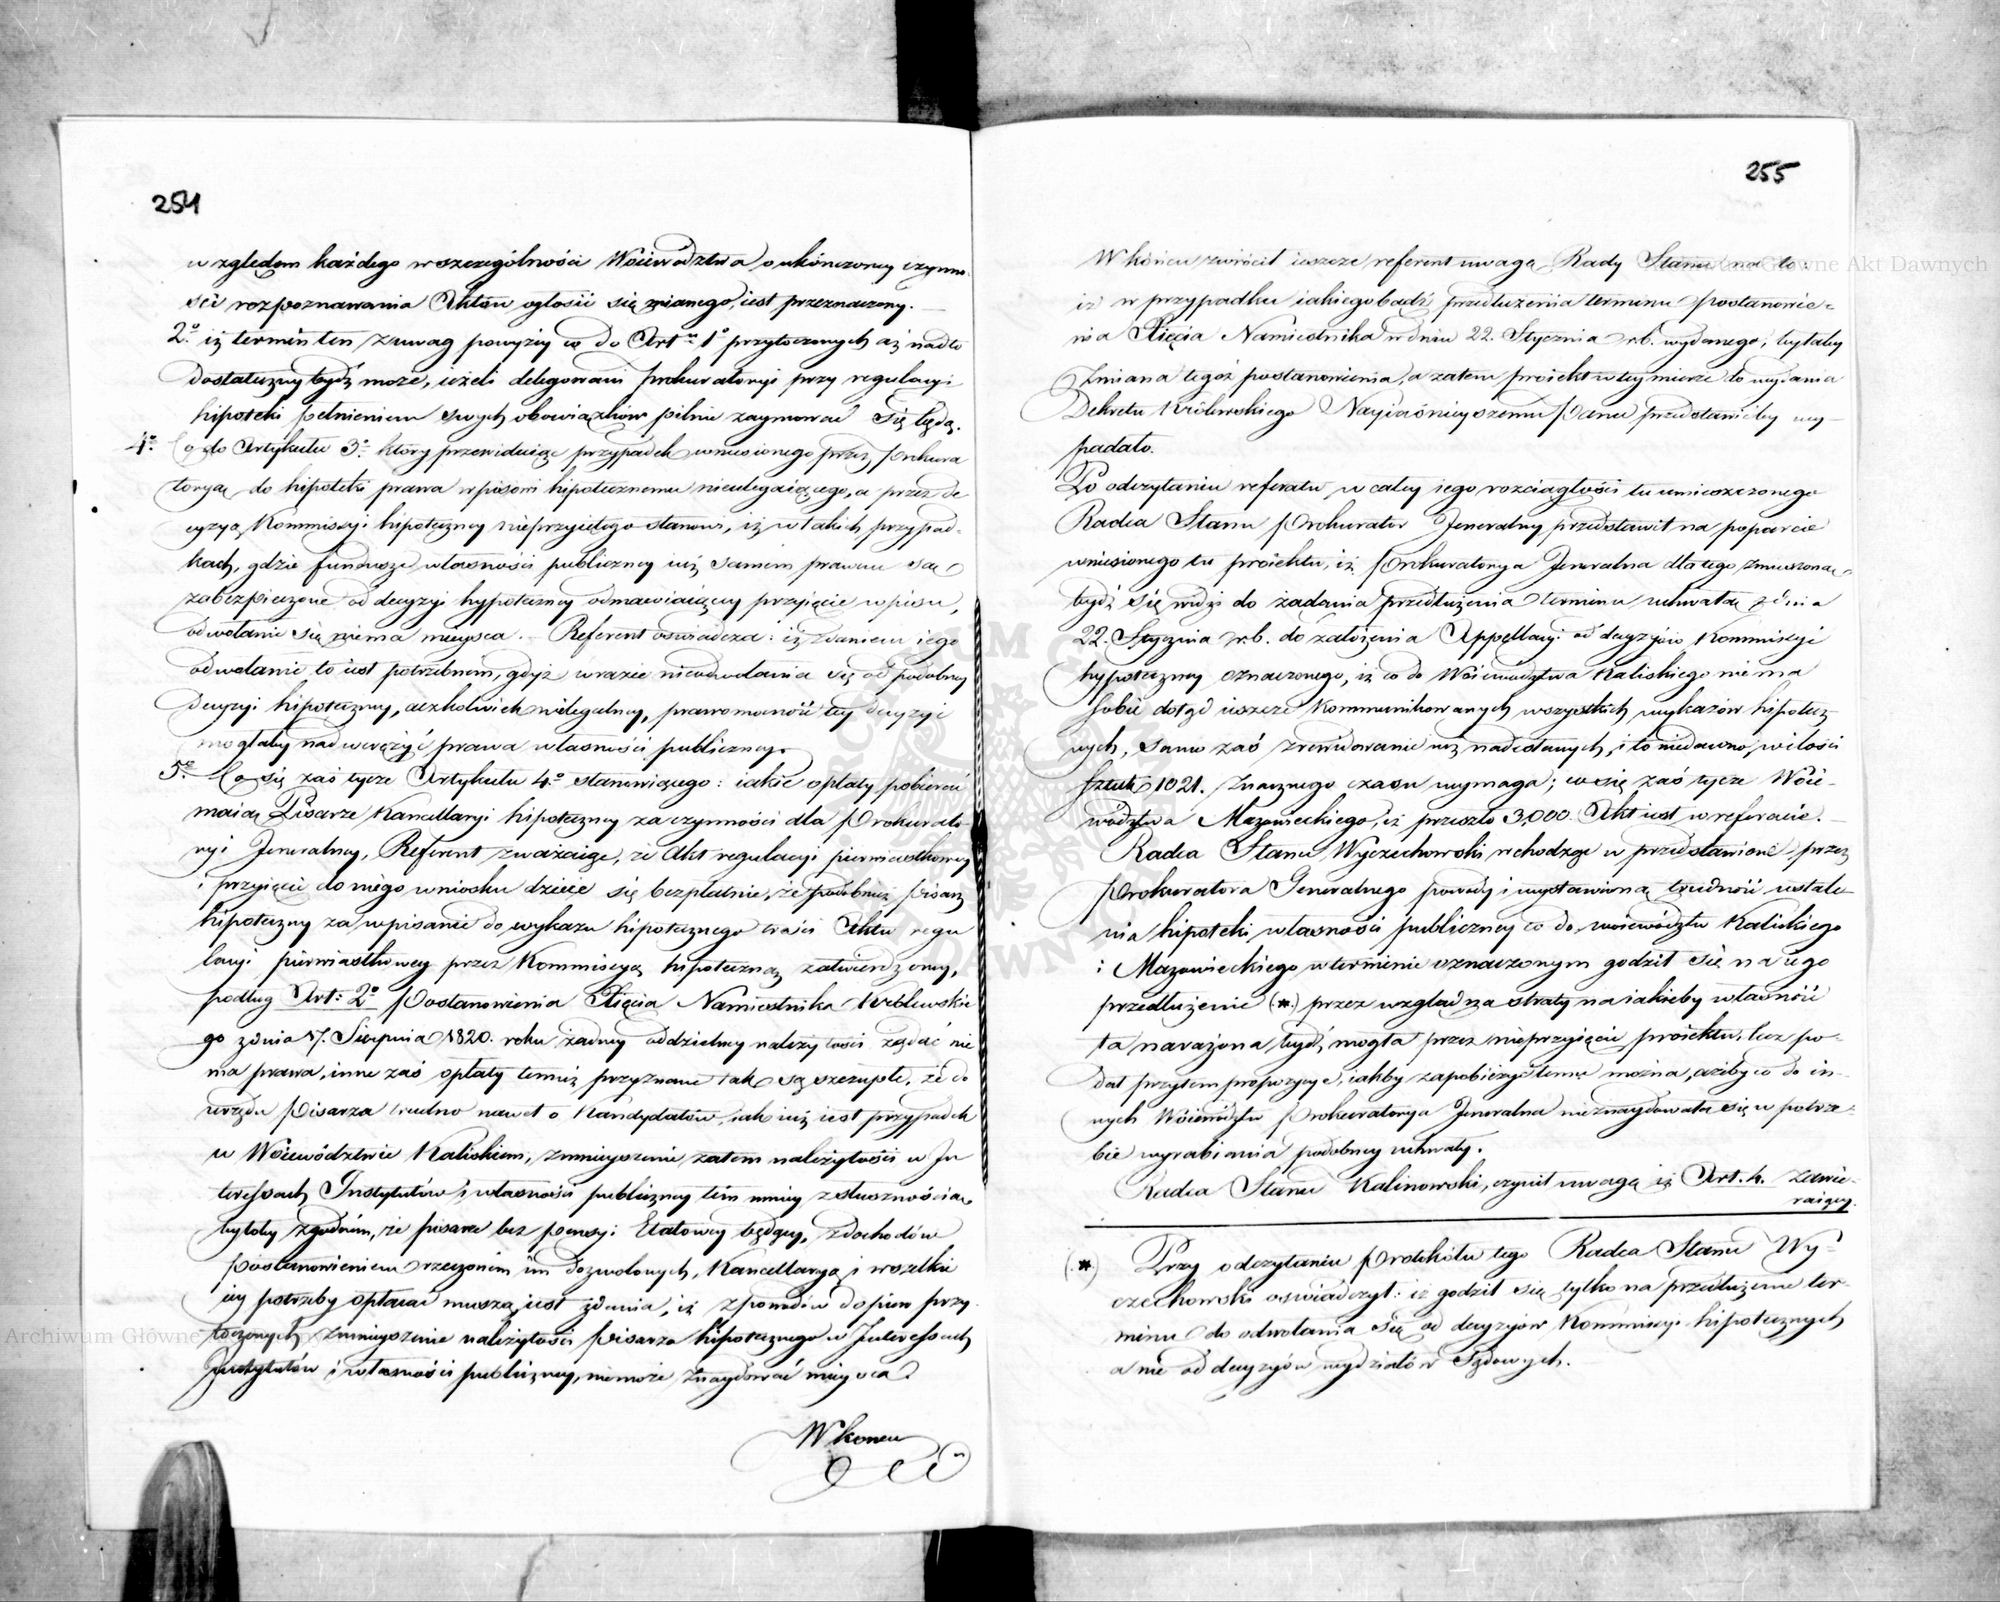 254
względem każdego w szczególności Woiewództwa o ukończoney czynno-
ści rozpoznawania Aktów ogłosić się maiącego, iest przeznaczony. —
2° iż termin ten z uwag powyżey co do Art. 1° przytoczonych aż nadto
dostateczny bydź może, ieżeli delegowani prokuratoryi przy regulacyi
hipoteki pełnieniem swych obowiązków pilnie zaymować się będą.
4° Co do Artykułu 3° który przewiduiąc przypadek wniesionego przez Prokura
toryą do hipoteki prawa wpisowi hipotecznemu nieulegaiącego, a przez de
cyzyą Kommissyi hipoteczney nieprzyiętego stanowi, iż w takich przypad-
kach, gdzie fundusze własności publiczney iuż samem prawem są
zabezpieczone od decyzyi hypoteczney odmawiaiącey przyięcie wpisu,
odwołanie się niema mieysca. — Referent oświadcza: iż zdaniem iego
odwołanie to iest potrzebnem, gdyż w razie nieodwołania się od podobney
decyzyi hipoteczney, aczkolwiek nielegalney, prawomocność tey decyzyi
mogłaby nadwerężyć prawa własności publiczney.
5° Co się zaś tycze Artykułu 4° stanowiącego: iakie opłaty pobierać
maią Pisarze Kancellaryi hipoteczney za czynności dla Prokurato
ryi Jeneralney, Referent zważaiąc, że Akt regulacyi pierwiastkowey
i przyięcie do niego wniosku dzieie się bezpłatnie, że podobnież pisarz
hipoteczny za wpisanie do wykazu hipotecznego treści Aktu regu
lacyi pierwiastkowey przez Kommissyą hipoteczną zatwierdzoney,
podług Art: 2° Postanowienia Xięcia Namiestnika Królewskie
go z dnia 17. Sierpnia 1820. roku żadney oddzielney należytości żądać nie
ma prawa, inne zaś opłaty temuż przyznane tak są szczupłe, że do
urzędu Pisarza trudno nawet o Kandydatów, iak iuż iest przypadek
w Woiewództwie Kaliskiem, zmnieyszenie zatem należytości w In
teressach Instytutów i własności publiczney tém mniey z słusznością
byłoby zgodném, że pisarze bez pensyi Etatowey będący, z dochodów
postanowieniem rzeczonem im dozwolonych, Kancellaryą i wszelkie
iey potrzeby opłacać muszą, iest zdania, iż z powodów dopiero przy-
toczonych zmnieyszenie należytości Pisarza hipotecznego w Interessach
Instytutów i własności publiczney, niemoże znaydować mieysca.
W koncu
255
W końcu zwrócił ieszcze referent uwagę Rady Stanu na to:
iż w przypadku iakiegobądź przedłużenia terminu postanowie-
nia Xięcia Namiestnika w dniu 22. Stycznia r.b. wydanego, byłaby
zmiana tegoż postanowienia, a zatem proiekt w tey mierze do wydania
Dekretu Królewskiego Nayiaśnieyszemu Panu przedstawićby wy-
padało.
Po odczytaniu referatu, w całey iego rozciągłości tu umieszczonego
Radca Stanu Prokurator Jeneralny przedstawił na poparcie
wniesionego tu proiektu, iż Prokuratorya Jeneralna dla tego zmuszoną
bydź się widzi do żądania przedłużenia terminu uchwałą z dnia
22. Stycznia r.b. do założenia Appellacyi od decyzyów Kommissyi
hypoteczney oznaczonego, iż co do Woiewództwa Kaliskiego niema
sobie dotąd ieszcze kommunikowanych wszystkich wykazów hipotecz
nych, samo zaś zrewidowanie iuż nadesłanych, i to niedawno, w ilości
sztuk 1021. znacznego czasu wymaga; co się zaś tycze Woie-
wództwa Mazowieckiego, iż przeszło 3,000. Akt iest w referacie. —
Radca Stanu Wyczechowski wchodząc w przedstawione przez
Prokuratora Generalnego powody i wystawioną trudność ustale
nia hipoteki własności publiczney co do woiewództw Kaliskiego
i Mazowieckiego w terminie oznaczonym godził się na iego
przedłużenie (*) przez wzgląd na straty na iakieby własność
ta narażona bydź mogła przez nieprzyięcie proiektu, lecz po-
dał przytem propozycye, iakby zapobieżyć temu można, ażeby co do in-
nych Woiewództw Prokuratorya Jeneralna nieznaydowała się w potrze-
bie wyrabiania podobney uchwały.
Radca Stanu Kalinowski, czynił uwagę iż Art. 4. zawie-
raiący
(*) Przy odczytaniu Protokółu tego Radca Stanu Wy-
czechowski oświadczył: iż godził się tylko na przedłużenie ter-
minu do odwołania się od decyzyów Kommissyi hipotecznych
a nie od decyzyów wydziałów Sądowych.
Archiwum Główne Akt Dawnych
Archiwum Główne